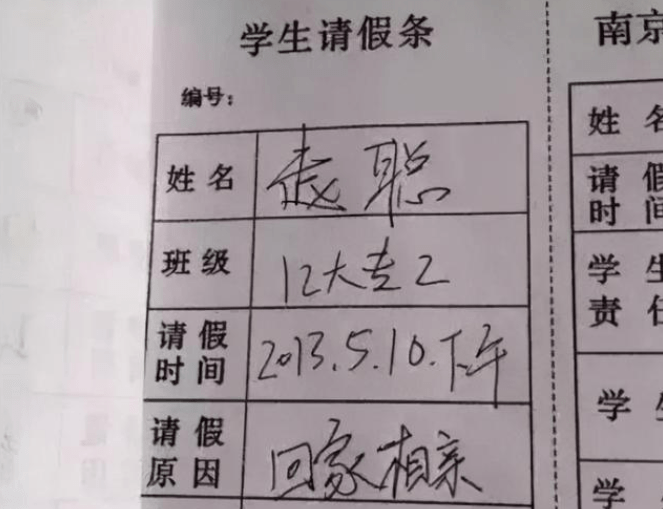 学生请假条
编号：
姓名 赵聪
班级 12大专2
请假时间 2013.5.10.下午
请假原因 回家相亲
南京
姓名
请假时间
学生
责任
学生
学